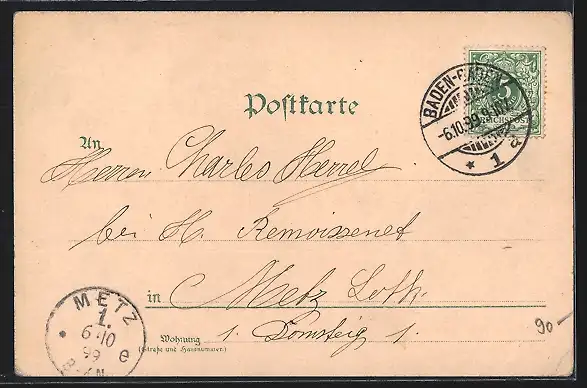 BADEN-BADEN
-6.10.99.
* 1 a
5
REICHSPOST
Postkarte
An
Herrn Charles Harrel
bei H. Remoissenet
in Metz Loth.
Wohnung
(Straße und Hausnummer).
1. Domsteig 1.
METZ
1.
6 10
99
e
90